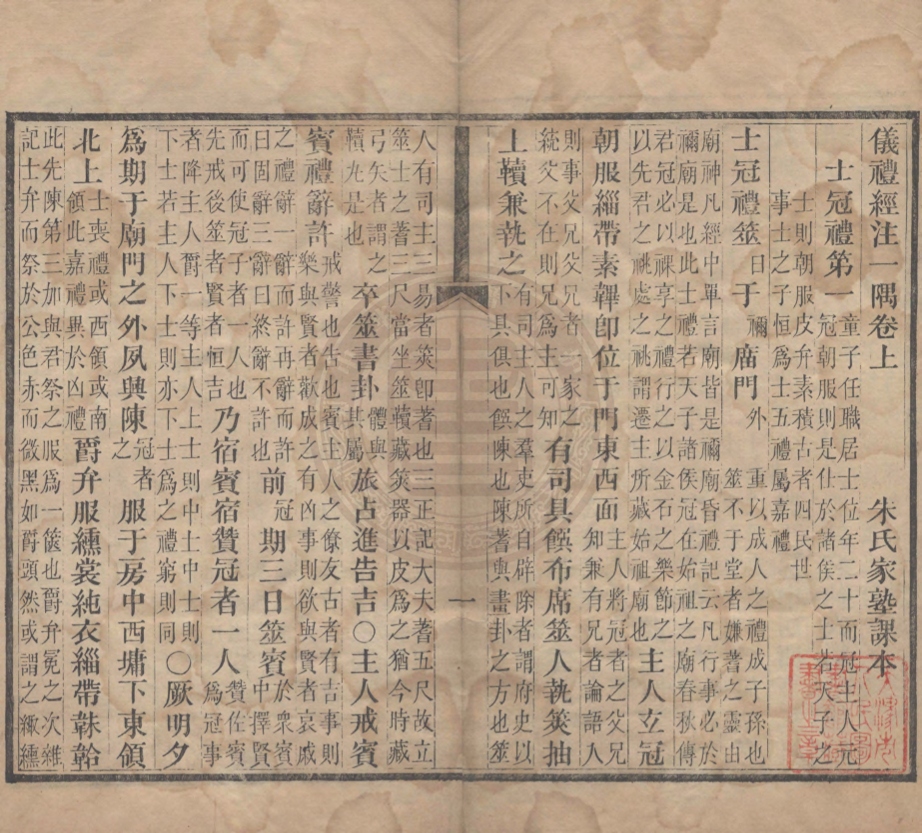 儀禮經注一隅卷上 朱氏家塾課本
士冠禮第一 童子任職居士位年二十而冠主人元冠朝服則是仕於諸侯之士若天子之
士則朝服皮弁素積古者四民世事士之子恒爲士五禮屬嘉禮
士冠禮筮日于禰廟門外 重以成人之禮成子孫也筮不于堂者嫌蓍之靈由
廟神凡也經中單言廟皆是禰廟昏禮記云凡行事必於禰廟是也此士禮若天子諸侯冠在始祖之廟春秋傳
君冠必以祼享之禮行之以金石之樂節之以先君之祧處之祧謂遷主所藏始祖廟也 主人玄冠
朝服緇帶素韠卽位于門東西面 主人將冠者之父兄知兼有兄者論語人
則事父兄父兄者一家之統父不在則兄爲主可知 有司具饌布席筮人執筴抽
上韇兼執之 有司主人之羣吏所自辟除者謂府史以下具俱也饌陳也陳蓍與畫卦之方也筮
人有司主三易者筴卽蓍也三正記大夫蓍五尺故立筮士之蓍三尺當坐筮韇藏筴器以皮爲之猶今時藏
弓矢者謂之韇丸是也 卒筮書卦 體與其屬 旅占進告吉〇主人戒賓
賓禮辭許 戒警也告也賓主人之僚友古者有吉事則樂與賢者歡成之有凶事則欲與賢者哀戚
之禮辭一辭而許再辭而許曰固辭三辭曰終辭不許也 前冠期三日筮賓 於衆賓中擇賢
而可使冠子者一人也先戒後筮者賢者恒吉 乃宿賓宿贊冠者一人 贊佐賓爲冠事
者降主人爵一等主人上士則中士中士則下士若主人下士則亦下士爲之禮窮則同 〇厥明夕
爲期于廟門之外夙興陳之冠者服于房中西墉下東領
北上 士喪禮或西領或南領此嘉禮異於凶禮 爵弁服纁裳純衣緇帶韎韐
此先陳第三加與君祭之服爲一篋也爵弁冕之次雜記士弁而祭於公色赤而微黑如爵頭然或謂之緅纁
一